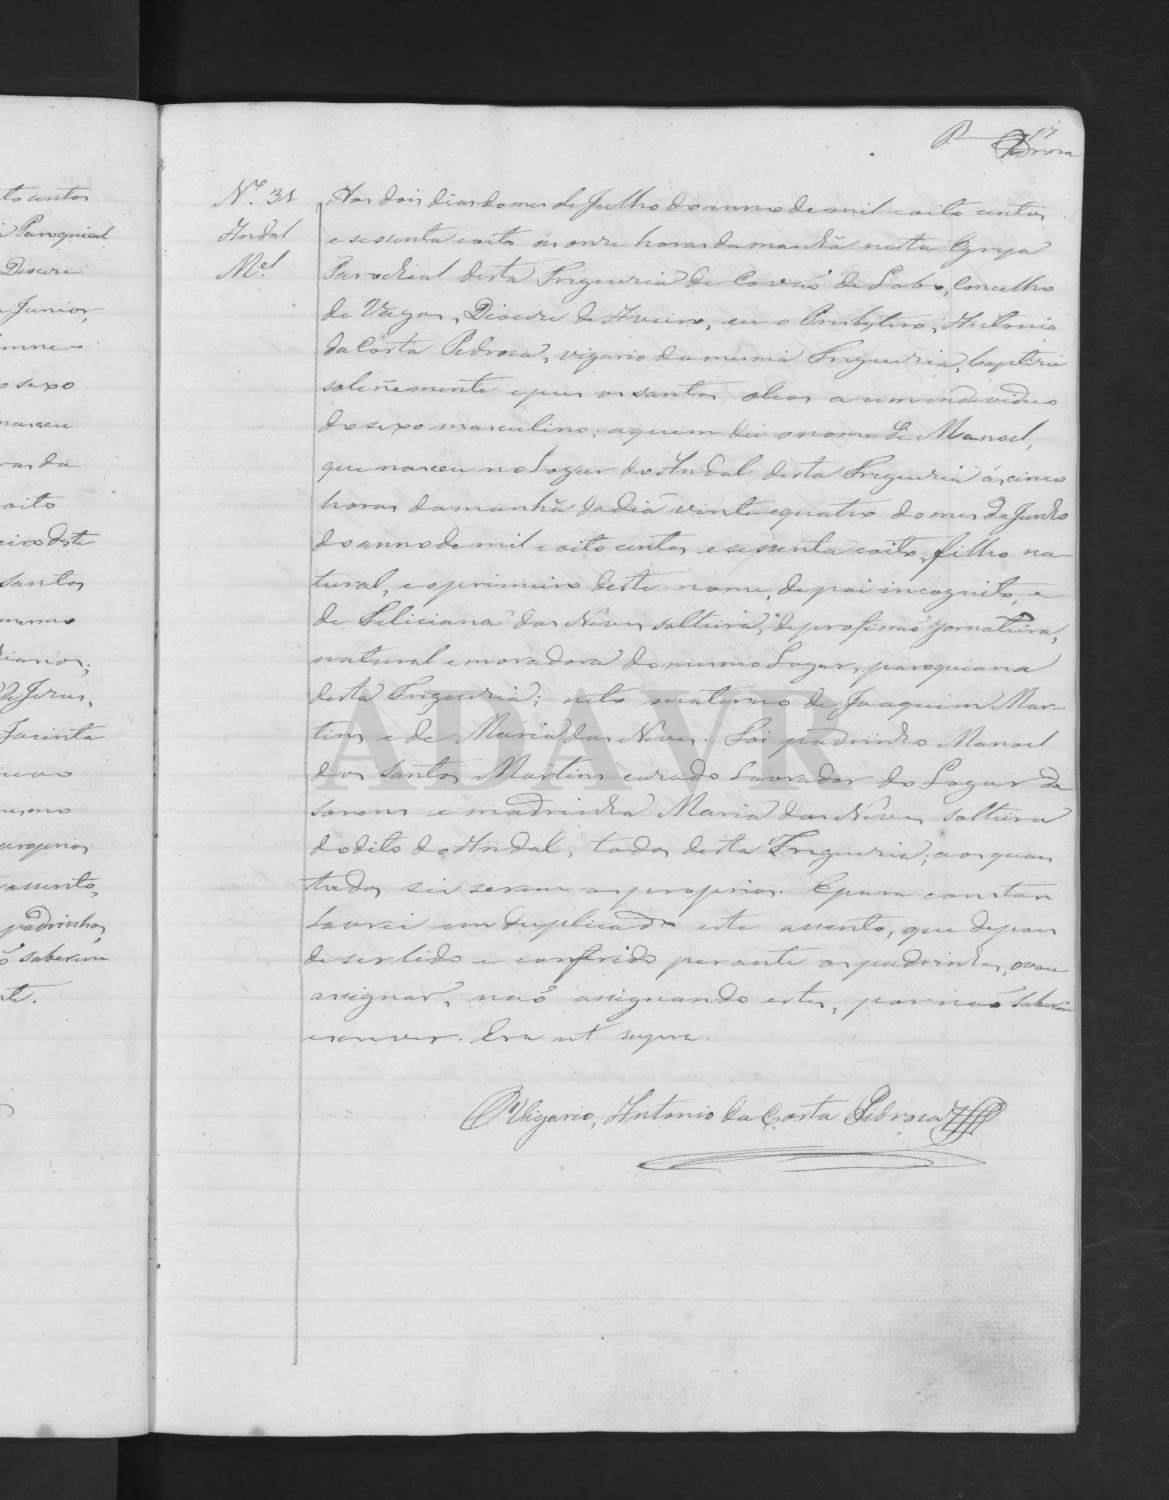 B 17
Pedrosa
Nº 31
Andal
Mel
Aos dois dias do mes de Julho do anno de mil e oito centos
e sessenta e oito ás onze horas da manhã nesta Egreja
Parochial desta Freguezia de Covaó de Lobo, Concelho
de Vagos, Diocese de Aveiro, eu o Presbytero, Antonio
da Costa Pedrosa, vigario da mesma Freguezia, baptizei
solemnemente e puz os santos oleos a um individuo
do sexo masculino; a quem dei o nome de Manoel,
que nasceu no Logar do Andal desta Freguezia ás cinco
horas da manhã do dia vinte e quatro do mes de Junho
do anno de mil e oito centos e sessenta e oito, filho na-
tural, e o primeiro deste nome, de pai incognito, e
de Feliciana das Neves solteira, de profissaõ jornaleira,
natural e moradora do mesmo Logar, paroquiana
desta Freguezia; neto materno de Joaquim Mar-
tins e de Maria das Neves. Foi padrinho Manoel
dos Santos Martins cazado Lavrador do Logar de
e madrinha Maria das Neves solteira
do dito do Andal, todos desta Freguezia; aos quaes
todos sei serem os proprios. E para constar
lavrei em duplicado este assento, que depois
de ser lido e conferido perante os padrinhos, o vou
assignar, naõ assignando estes, por naõ saberem
escrever. Era ut supra.
O Vigario, Antonio da Costa Pedrosa
ADAVR
to centos
Paroquial
Diocese
Junior,
o sexo
nasceu
ras da
oito
santos
mesmo
de Jesus,
Jacinta
mesmo
proprios
assento,
padrinhos,
saberem